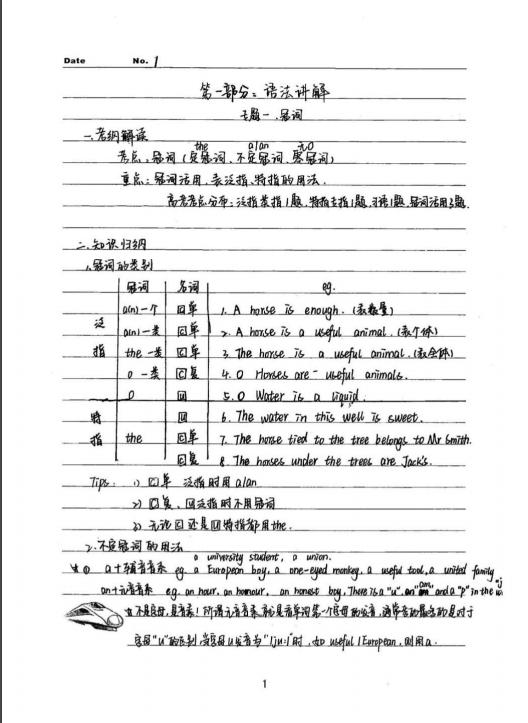 Date No. 1
第一部分：语法讲解
专题一、冠词
一、考纲解读
the a/an 无0
考点：冠词（定冠词、不定冠词、零冠词）
重点：冠词活用，表泛指、特指的用法.
高考考点分布：泛指类指1题，特指主指1题，习语1题，冠词活用3题.
二、知识归纳
1、冠词的类别
冠词 名词 eg.
泛指
a(n)一个 C单 1. A horse is enough. (表数量)
a(n)一类 C单 2. A horse is a useful animal. (表个体)
the 一类 C单 3. The horse is a useful animal. (表全体)
0 一类 C复 4. 0 Horses are useful animals.
0 U 5. 0 Water is a liquid.
特指
U 6. The water in this well is sweet.
the C单 7. The horse tied to the tree belongs to Mr Smith.
C复 8. The horses under the trees are Jack's.
Tips: 1) C单 泛指时用 a/an
2) C复、U泛指时不用冠词
3) 无论C还是U特指都用the.
2、不定冠词的用法
a university student, a union.
① a+辅音音素 eg. a European boy, a one-eyed monkey, a useful tool, a united family
an+元音音素 eg. an hour, an honour, an honest boy, There is a "u", an "m" and a "p" in the
不是字母，是音素！所谓元音音素，就是看单词第一个音标的发音，通常考的最多的是对于
字母"u"的区别，当字母u发音为"/ju:/"时，如 useful / European, 则用a.
1